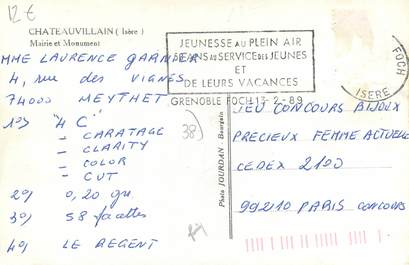 12€
CHATEAUVILLAIN ( Isère )
Mairie et Monument
MME LAURENCE GARNIER
4, rue des VIGNES
74000 MEYTHET
1°) "4 C"
- CARATAGE
- CLARITY
- COLOR
- CUT
2°) 0,20 gr.
3°) 58 facettes
4°) LE REGENT
38)
Photo JOURDAN - Bourgoin
JEUNESSE AU PLEIN AIR
ANS AU SERVICE DES JEUNES
ET
DE LEURS VACANCES
GRENOBLE FOCH 17-2-89
FOCH
ISERE
JEU CONCOURS BIJOUX
PRECIEUX FEMME ACTUELLE
CEDEX 2100
99210 PARIS CONCOURS